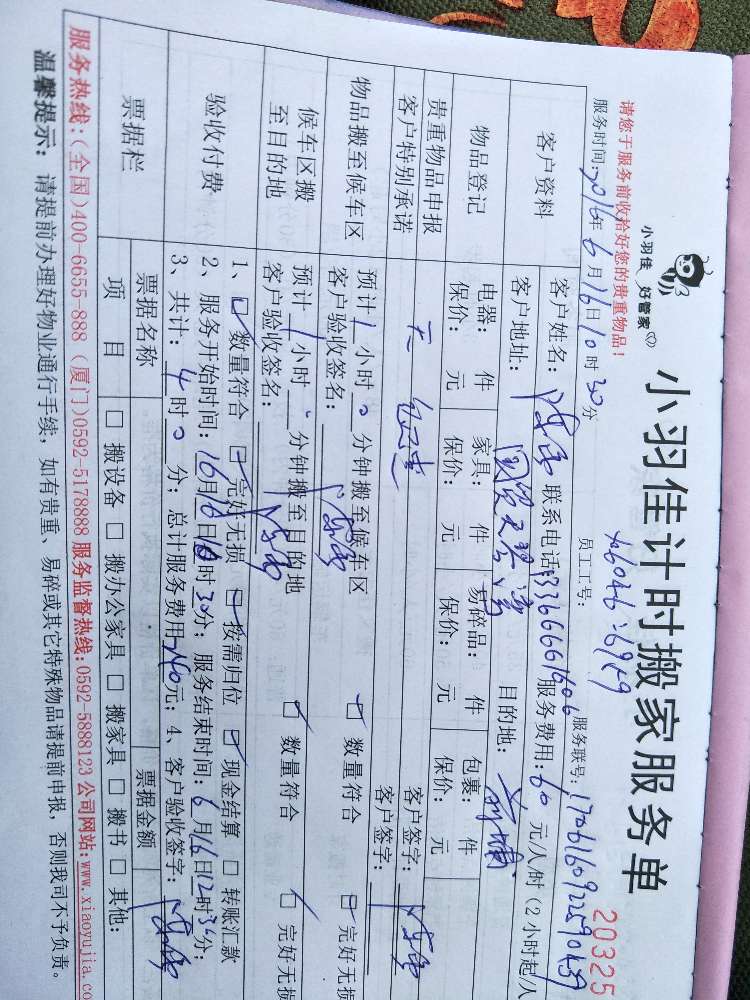 小羽佳 好管家
小羽佳计时搬家服务单
20325
请您于服务前收拾好您的贵重物品!
员工工号:
服务联号:
服务时间: 2016年6月16日10时30分
客户资料
客户姓名: 联系电话: 服务费用: 60 元/人/时(2小时起/人
客户地址: 目的地:
物品登记
电器: 件 家具: 件 易碎品: 件 包裹: 件
保价: 元 保价: 元 保价: 元 保价: 元
贵重物品申报
客户特别承诺
无
客户签字:
物品搬至候车区
预计1小时0分钟搬至候车区 数量符合 完好无损
客户验收签名: 客户签字:
候车区搬
至目的地
预计1小时 分钟搬至目的地 数量符合 完好无损
客户验收签名:
验收付费
1、 数量符合 完好无损 按需归位 现金结算 转账汇款
2、服务开始时间: 6月16日10时30分; 服务结束时间: 6月16日12时30分;
3、共计: 4时0分; 总计服务费用 元; 4、客户验收签字:
票据栏
票据名称 票据金额
项目 搬设备 搬办公家具 搬家具 搬书 其他:
服务热线:(全国)400-6655-888 (厦门)0592-5178888 服务监督热线:0592-5888123 公司网站:www.xiaoyujia.co
温馨提示: 请提前办理好物业通行手续, 如有贵重、易碎或其它特殊物品请提前申报, 否则我司不予负责。